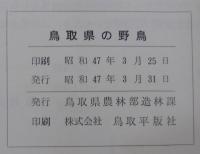 鳥取県の野鳥
印刷 昭和47年3月25日
発行 昭和47年3月31日
発行 鳥取県農林部造林課
印刷 株式会社 鳥取平版社